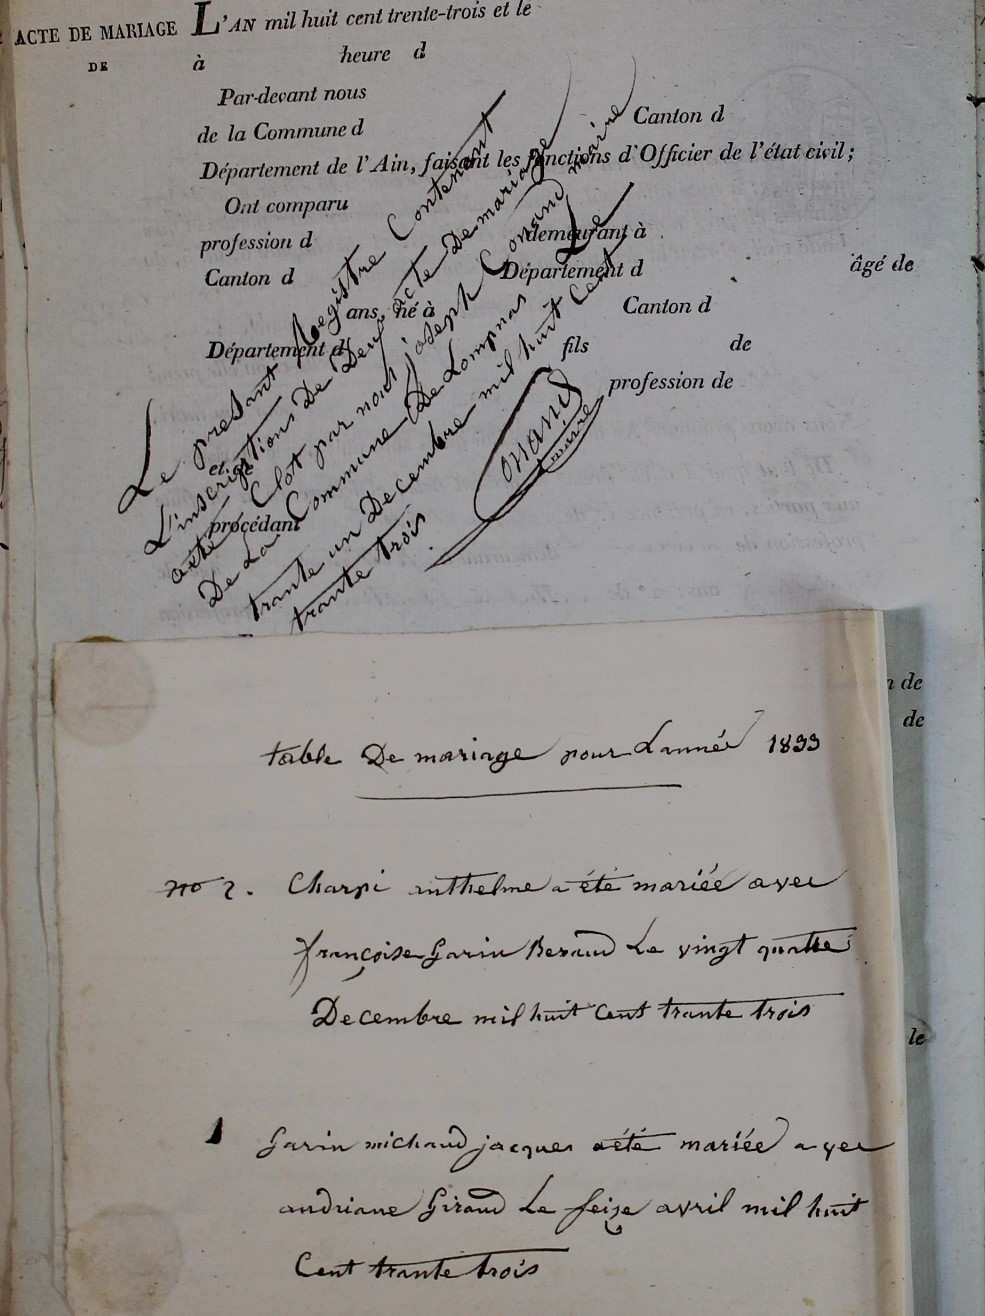 ACTE DE MARIAGE L'AN mil huit cent trente-trois et le
DE à heure d
Par-devant nous
de la Commune d Canton d
Département de l'Ain, faisant les fonctions d'Officier de l'état civil;
Ont comparu
profession d demeurant à
Canton d Département d âgé de
ans, né à Canton d
Département d fils de
profession de
et de
procédant
Le present Registre Contenant
L'inscriptions De Deux acte De mariage
a été Clot par nous joseph Conand maire
De La Commune De Lompnas Le
trante un Decembre mil huit Cent
trante trois
Conand
maire
n de
de
le
table De mariage pour Lannée 1833
no 2. Charpi anthelme a été mariée avec
françoise Garin Beraud Le vingt quatre
Decembre mil huit Cent trante trois
1 Garin michaud jacques a été mariée avec
andriane Giraud Le seize avril mil huit
Cent trante trois